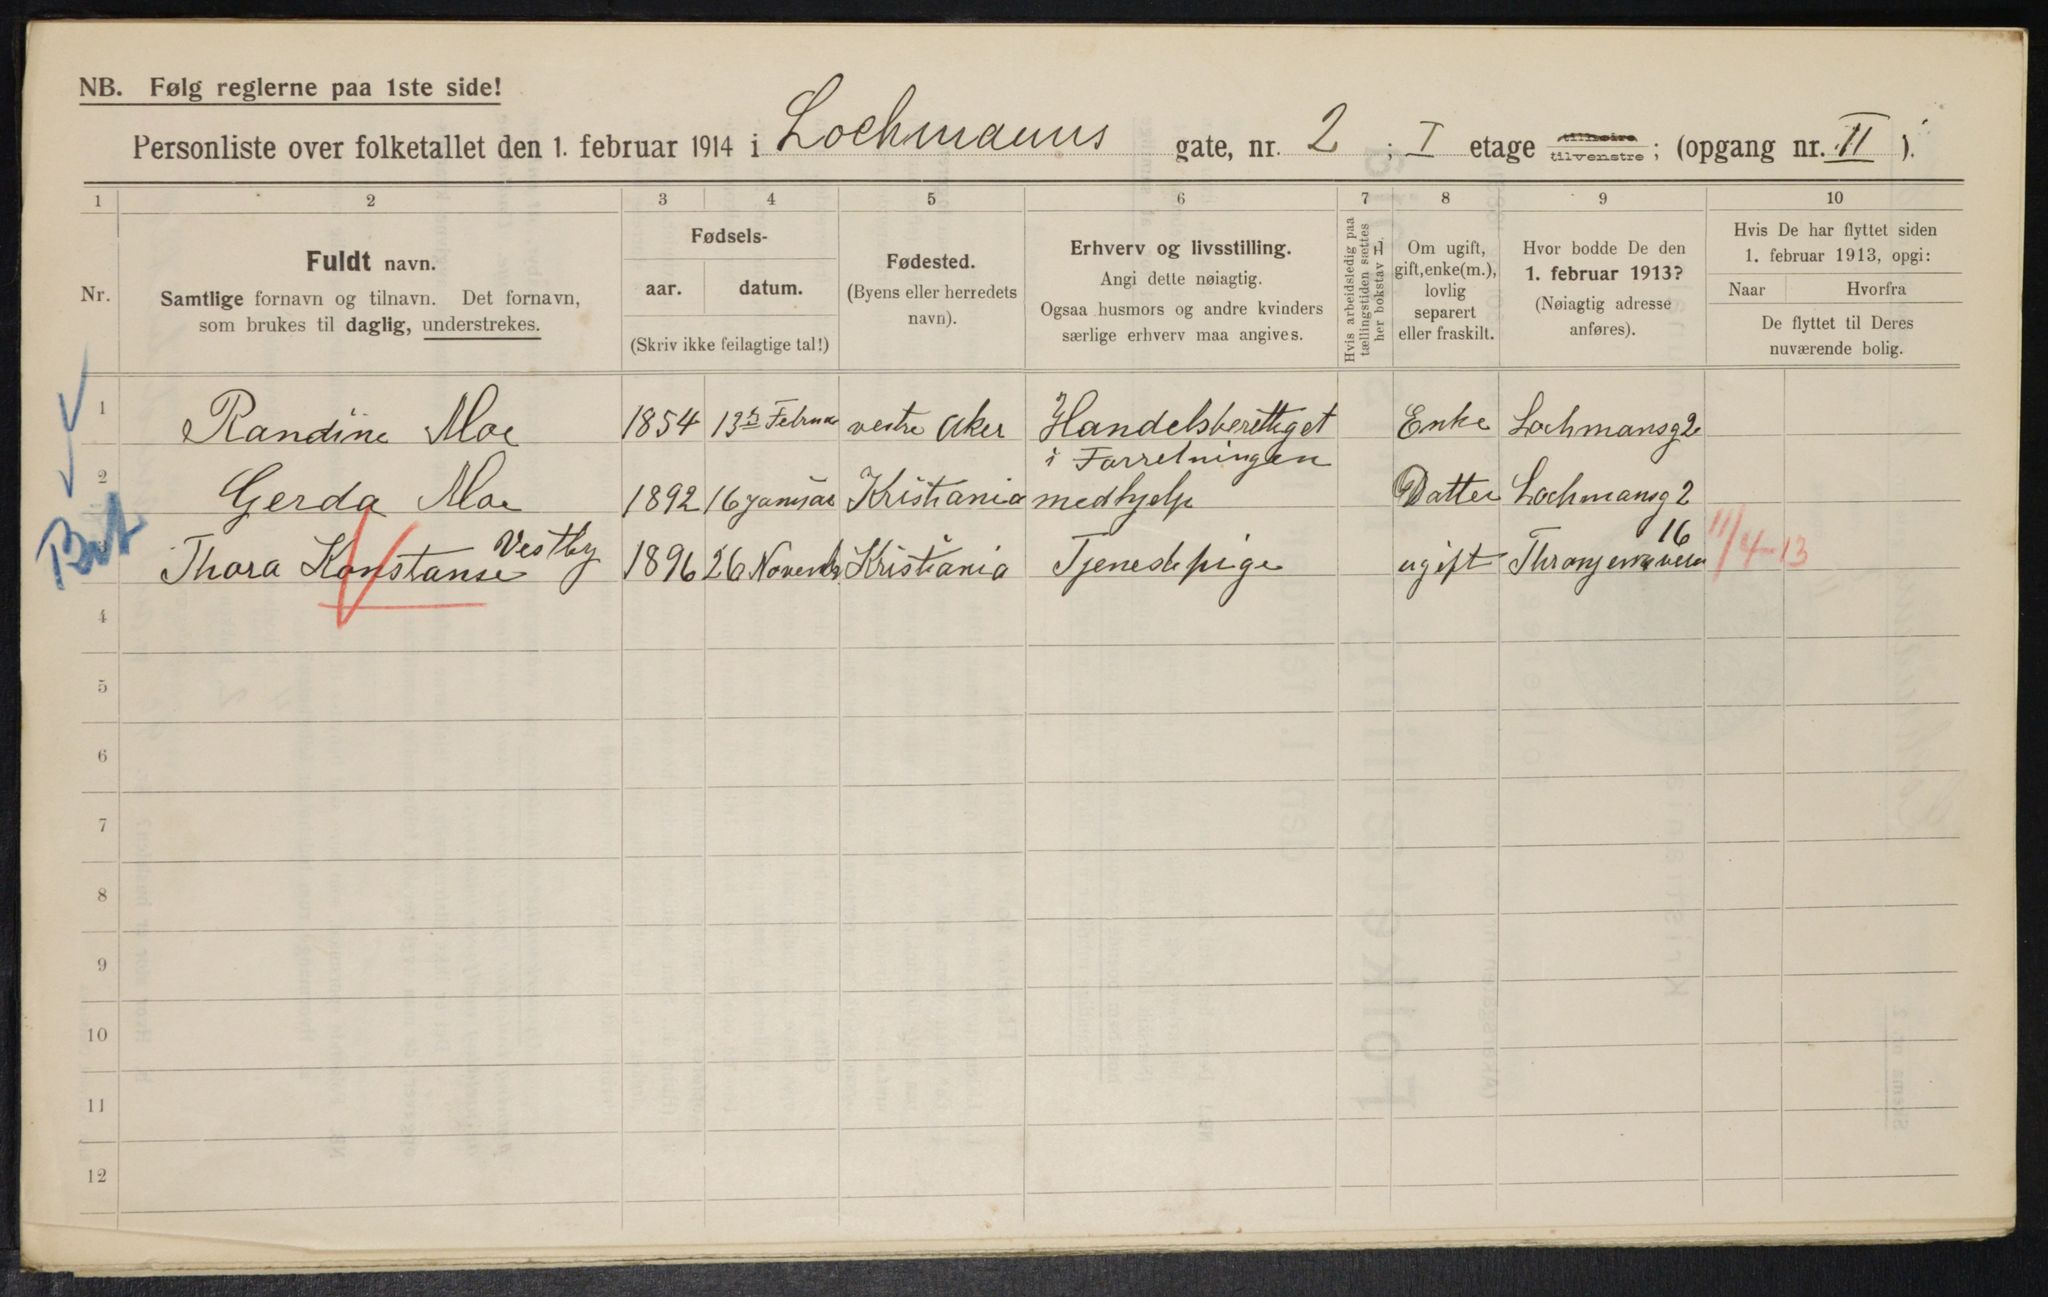 NB. Følg reglerne paa 1ste side!
Personliste over folketallet den 1. februar 1914 i Lochmanns gate, nr. 2 ; I etage tilhøire tilvenstre ; (opgang nr. II ).
1 2 3 4 5 6 7 8 9 10
Nr.
Fuldt navn.
Samtlige fornavn og tilnavn. Det fornavn,
som brukes til daglig, understrekes.
Fødsels-
aar. datum.
(Skriv ikke feilagtige tal!)
Fødested.
(Byens eller herredets
navn).
Erhverv og livsstilling.
Angi dette nøiagtig.
Ogsaa husmors og andre kvinders
særlige erhverv maa angives.
Hvis arbeidsledig paa
tællingstiden sættes
her bokstav L
Om ugift,
gift, enke(m.),
lovlig
separert
eller fraskilt.
Hvor bodde De den
1. februar 1913?
(Nøiagtig adresse
anføres).
Hvis De har flyttet siden
1. februar 1913, opgi:
Naar Hvorfra
De flyttet til Deres
nuværende bolig.
1 Randine Moe 1854 13de Februar vestre Aker Handelsberettiget Enke Lochmansg 2
2 Gerda Moe 1892 16 januar Kristiania i Forretningen
medhjelp Datter Lochmansg 2
3 Thora Konstanse Vestby 1896 26 Novemb Kristiania Tjenestepige ugift 16 11/4-13
4
5
6
7
8
9
10
11
12